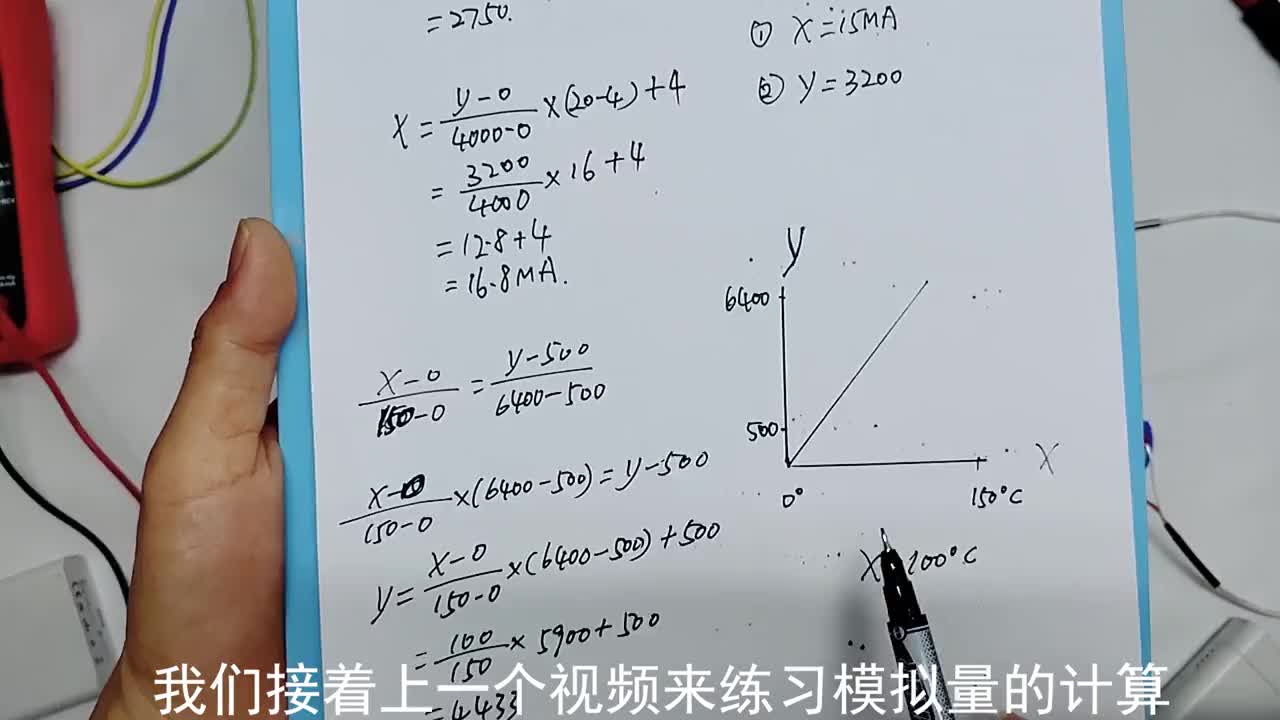 =2750.
X = (y-0)/(4000-0) ×(20-4)+4
= 3200/4000 ×16+4
=12.8+4
=16.8MA.
(X-0)/(150-0) = (y-500)/(6400-500)
(X-0)/(150-0) ×(6400-500)=y-500
y= (X-0)/(150-0) ×(6400-500)+500
= 100/150 × 5900+500
=4433
① X=15MA
② y=3200
y
6400
500
0°
150°C
X
X 100°C
我们接着上一个视频来练习模拟量的计算